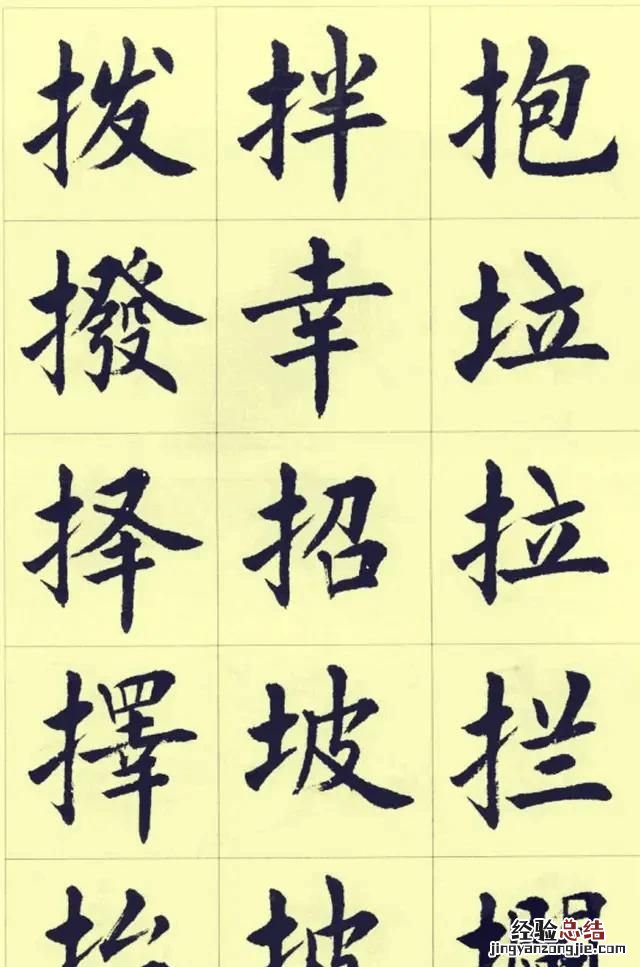 抱垃拉拦攔
拌幸招坡
拨撥择擇抬
经验总结
jingyanzongjie.com